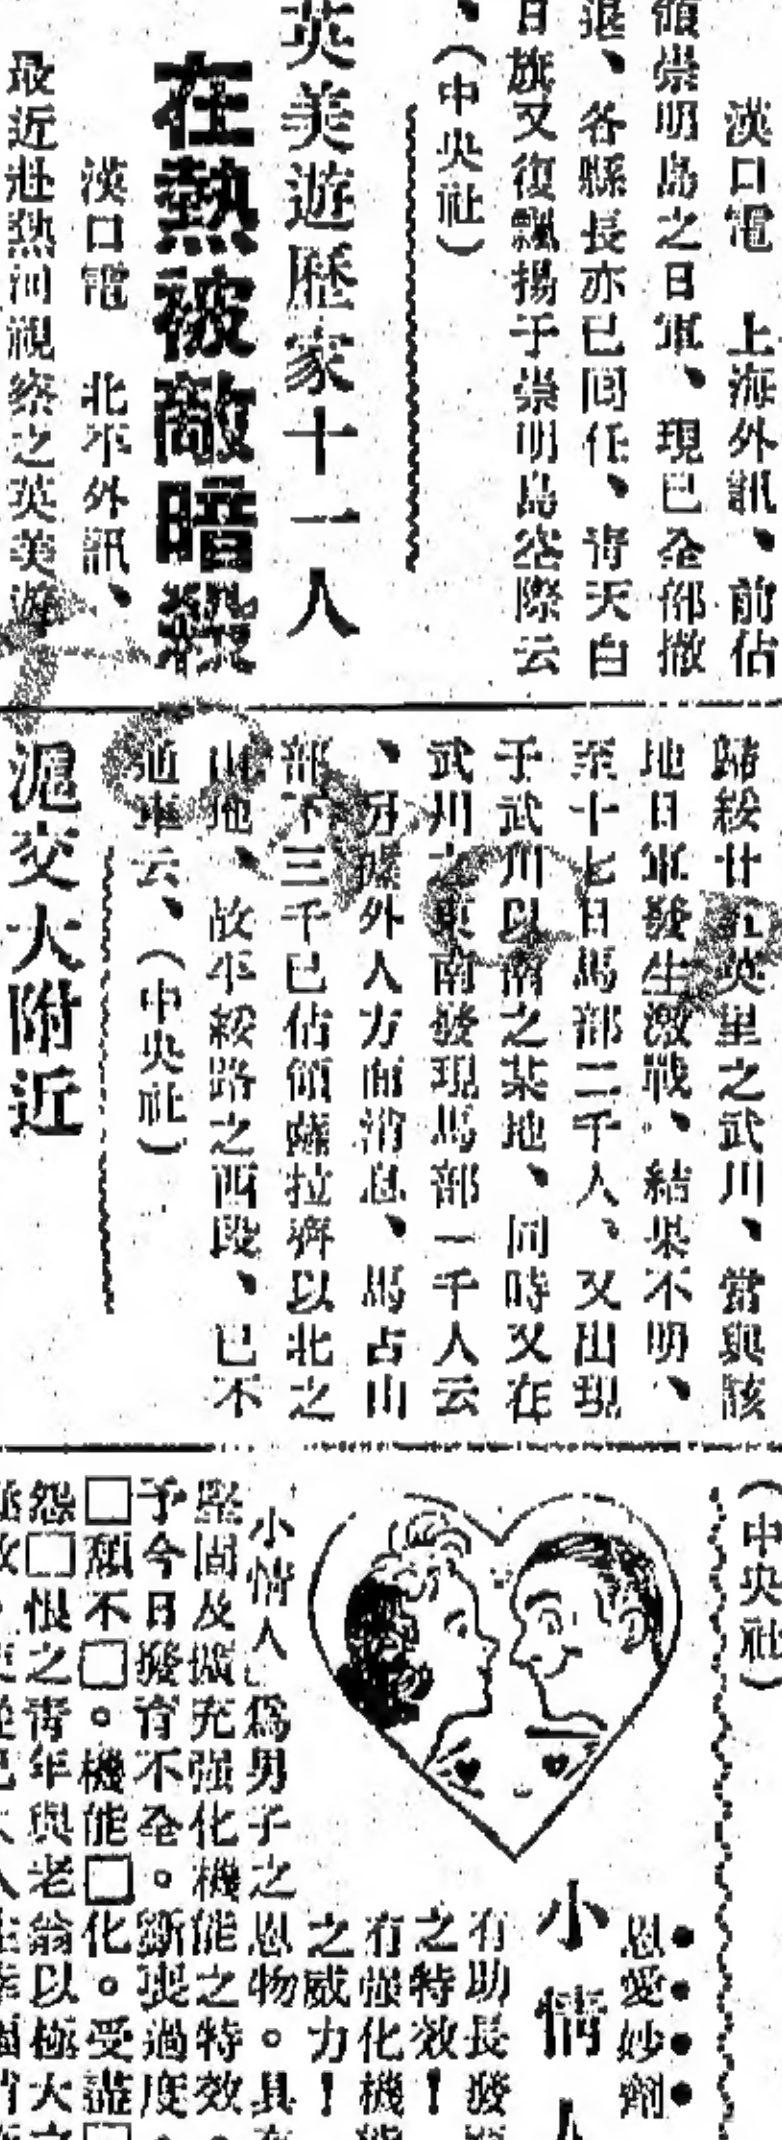 漢口電　上海外訊、前佔
領崇明島之日軍、現已全部撤
退、各縣長亦已回任、青天白
日旗又復飄揚于崇明島空際云
、（中央社）
英美遊歷家十一人
在熱被敵暗殺
漢口電　北平外訊、
最近赴熱河視察之英美遊
歸綏廿五英里之武川、當與該
地日軍發生激戰、結果不明、
至十七日馬部二千人、又出現
于武川以南之某地、同時又在
武川之東南發現馬部一千人云
、另據外人方面消息、馬占山
部下三千已佔領薩拉齊以北之
山地、故平綏路之西段、已不
通車云、（中央社）
滬交大附近
（中央社）
恩愛妙劑
小情人
有助長發
之特效！
有强化機能
之威力！
小情人爲男子之恩物。具
堅固及擴充强化機能之特效。
予今日發育不全。斲喪過度。
□頹不□。機能□化。受盡□
怨□恨之青年與老翁以極大之